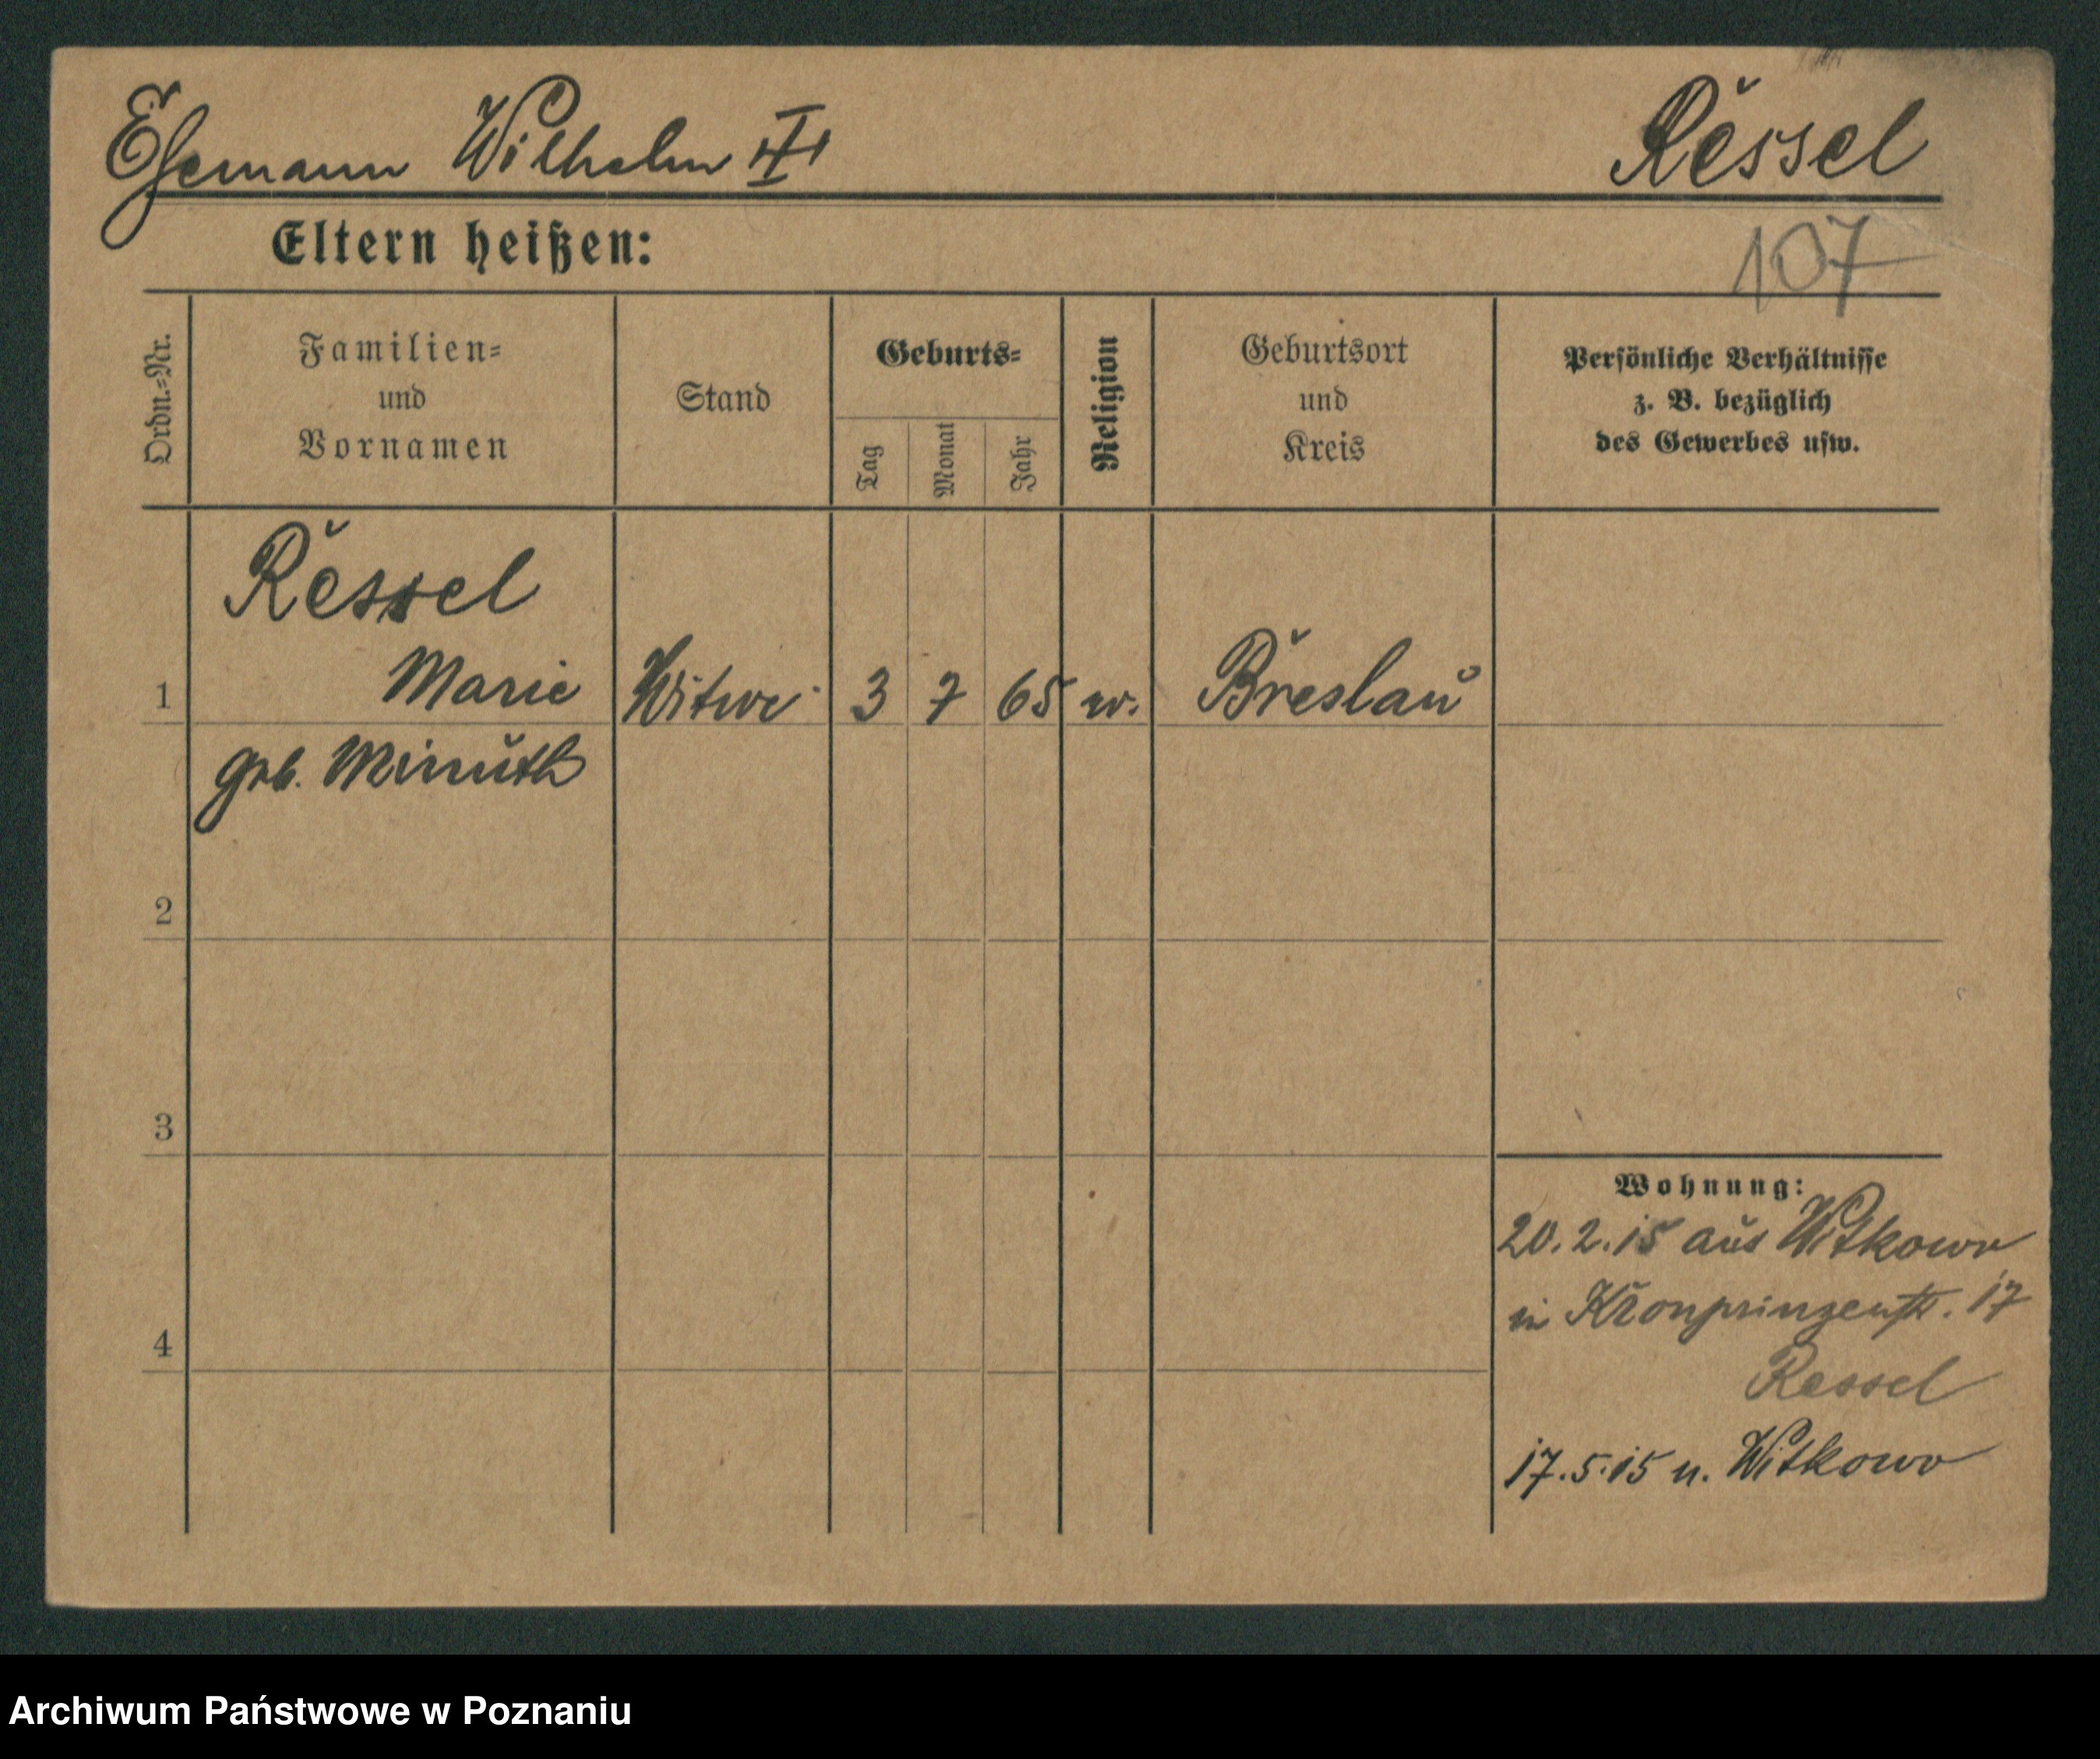 Ehemann Wilhelm † Ressel
Eltern heißen:
107
Ordn.-Nr.
Familien-
und
Vornamen
Stand
Geburts-
Tag
Monat
Jahr
Religion
Geburtsort
und
Kreis
Persönliche Verhältnisse
z. B. bezüglich
des Gewerbes usw.
Ressel
1 Marie Witwe 3 7 65 Breslau
geb. Minuth
2
3
4
Wohnung:
20.2.15 aus Witkowo
in Kronprinzenstr. 17
Ressel
17.5.15 n. Witkowo
Archiwum Państwowe w Poznaniu